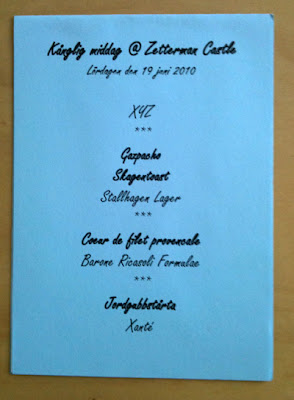 Kunglig middag @ Zetterman Castle
Lördagen den 19 juni 2010
XYZ
***
Gazpacho
Skagentoast
Stallhagen Lager
***
Coeur de filet provencale
Barone Ricasoli Formulae
***
Jordgubbstårta
Xanté